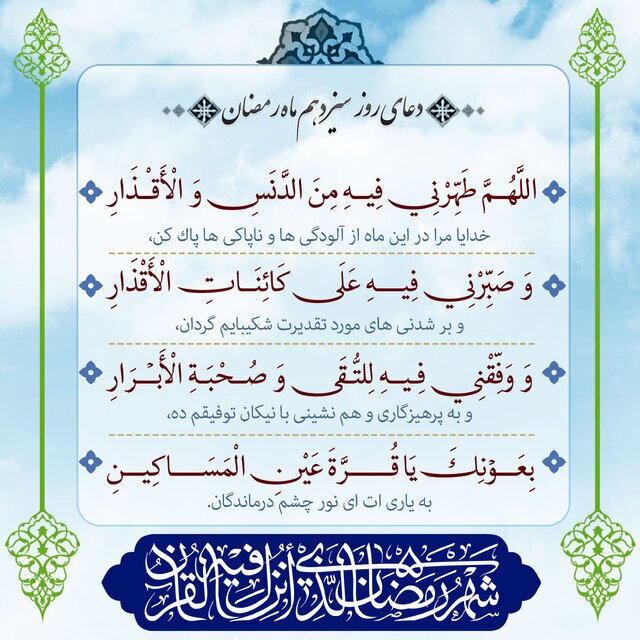 دعای روز سیزدهم ماه رمضان
اللَّهُمَّ طَهِّرْنِي فِيهِ مِنَ الدَّنَسِ وَ الْأَقْذَارِ
خدایا مرا در این ماه از آلودگی ها و ناپاکی ها پاک کن،
وَ صَبِّرْنِي فِيهِ عَلَى كَائِنَاتِ الْأَقْدَارِ
و بر شدنی های مورد تقدیرت شکیبایم گردان،
وَ وَفِّقْنِي فِيهِ لِلتُّقَى وَ صُحْبَةِ الْأَبْرَارِ
و به پرهیزگاری و هم نشینی با نیکان توفیقم ده،
بِعَوْنِكَ يَا قُرَّةَ عَيْنِ الْمَسَاكِينِ
به یاری ات ای نور چشم درماندگان.
شَهْرُ رَمَضَانَ الَّذِي أُنْزِلَ فِيهِ الْقُرْآنُ